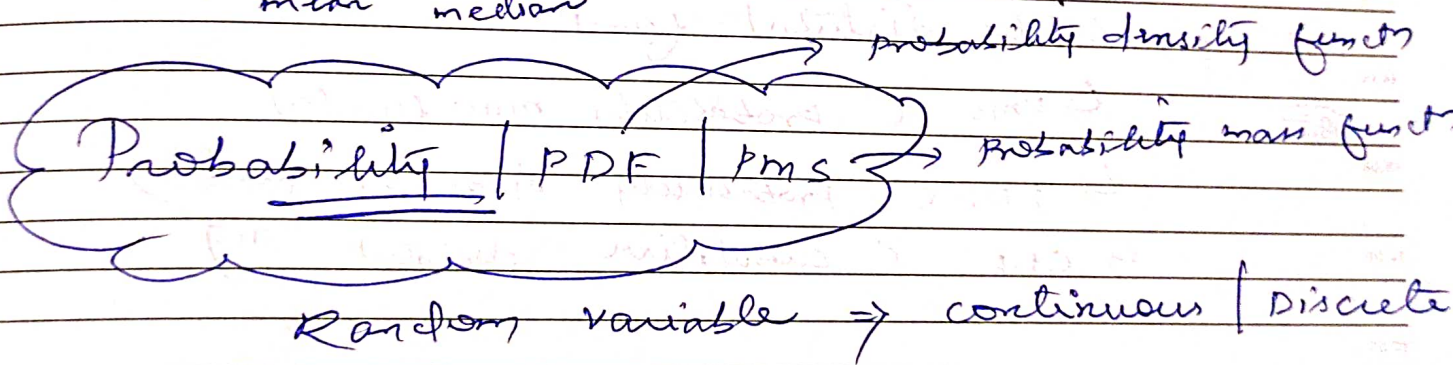 mean median
probability density functn
Probability | PDF | PMS → Probability mass functn
Random variable ⇒ continuous | Discrete